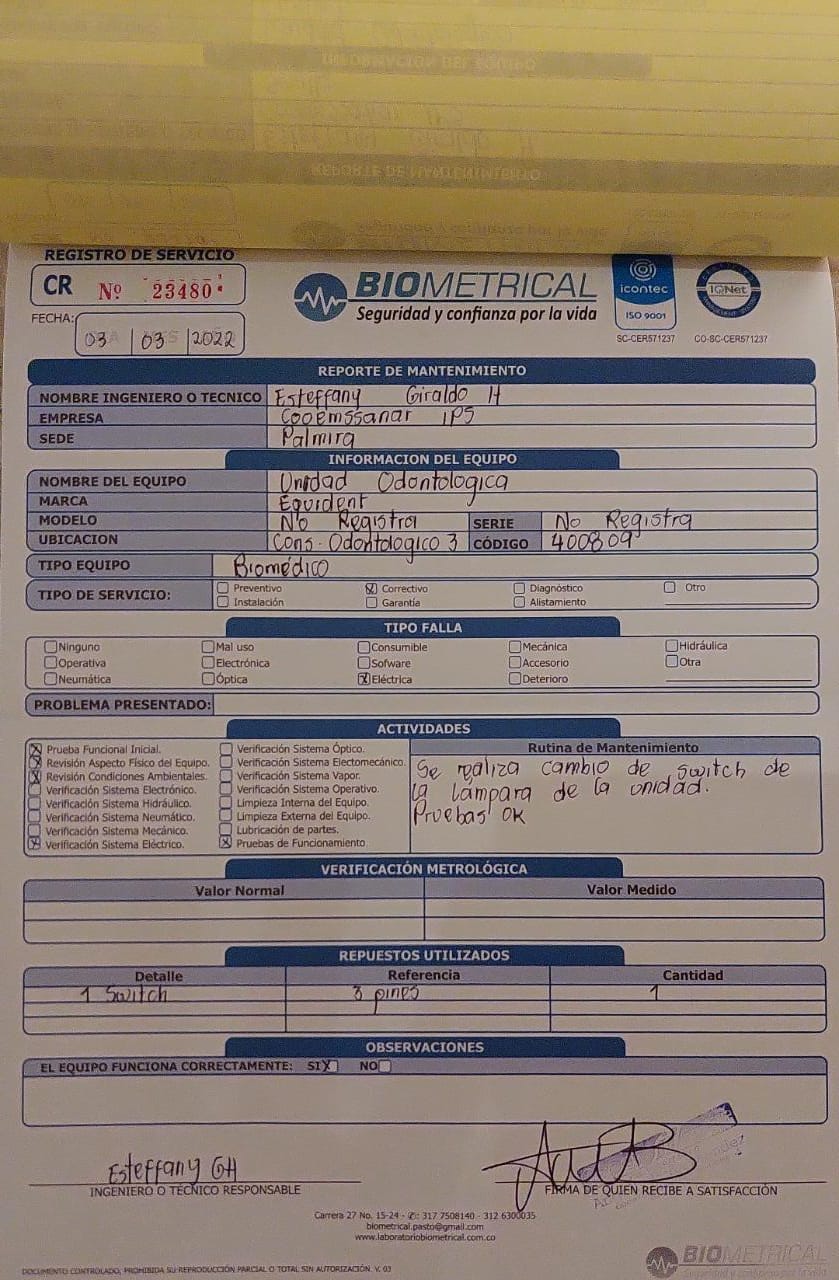 REGISTRO DE SERVICIO
CR Nº 23480
FECHA: 03 03 2022
BIOMETRICAL
Seguridad y confianza por la vida
icontec
ISO 9001
SC-CER571237
IQNet
CO-SC-CER571237
REPORTE DE MANTENIMIENTO
NOMBRE INGENIERO O TECNICO Esteffany Giraldo H
EMPRESA Cooemssanar IPS
SEDE Palmira
INFORMACION DEL EQUIPO
NOMBRE DEL EQUIPO Unidad Odontologica
MARCA Equident
MODELO No Registra SERIE No Registra
UBICACION Cons. Odontologico 3 CÓDIGO 400809
TIPO EQUIPO Biomédico
TIPO DE SERVICIO: Preventivo X Correctivo Diagnóstico Otro
Instalación Garantía Alistamiento
TIPO FALLA
Ninguno Mal uso Consumible Mecánica Hidráulica
Operativa Electrónica Sofware Accesorio Otra
Neumática Óptica X Eléctrica Deterioro
PROBLEMA PRESENTADO:
ACTIVIDADES
X Prueba Funcional Inicial.
X Revisión Aspecto Físico del Equipo.
X Revisión Condiciones Ambientales.
Verificación Sistema Electrónico.
Verificación Sistema Hidráulico.
Verificación Sistema Neumático.
Verificación Sistema Mecánico.
X Verificación Sistema Eléctrico.
Verificación Sistema Óptico.
Verificación Sistema Electomecánico.
Verificación Sistema Vapor.
Verificación Sistema Operativo.
Limpieza Interna del Equipo.
Limpieza Externa del Equipo.
Lubricación de partes.
X Pruebas de Funcionamiento
Rutina de Mantenimiento
Se realiza cambio de switch de
la lámpara de la unidad.
Pruebas OK
VERIFICACIÓN METROLÓGICA
Valor Normal Valor Medido
REPUESTOS UTILIZADOS
Detalle Referencia Cantidad
1 Switch 3 pines 1
OBSERVACIONES
EL EQUIPO FUNCIONA CORRECTAMENTE: SI X NO
Esteffany GH
INGENIERO O TÉCNICO RESPONSABLE
FIRMA DE QUIEN RECIBE A SATISFACCIÓN
Carrera 27 No. 15-24 - ✆: 317 7508140 - 312 6300035
biometrical.pasto@gmail.com
www.laboratoriobiometrical.com.co
DOCUMENTO CONTROLADO, PROHIBIDA SU REPRODUCCIÓN PARCIAL O TOTAL SIN AUTORIZACIÓN. V. 03
BIOMETRICAL
Seguridad y confianza por la vida